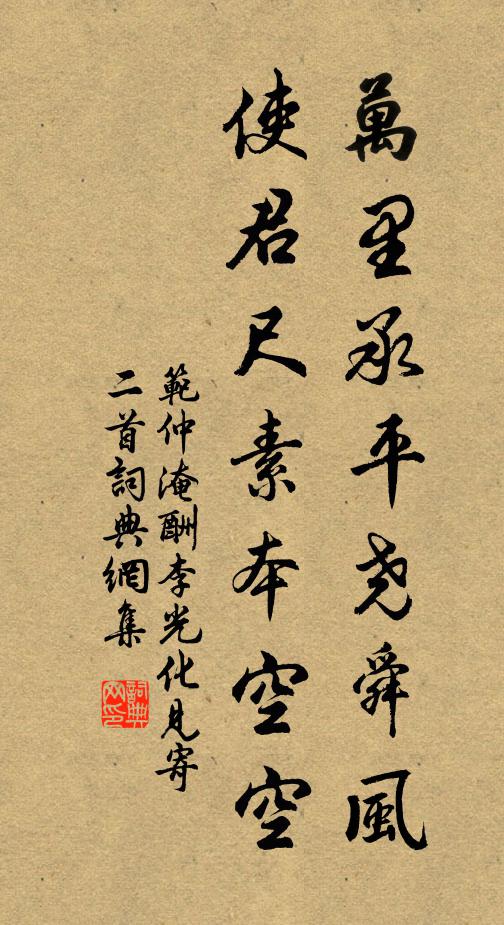 萬里承平尧舜風
使君尺素本空空
範仲淹酬李光化見寄
二首詞典網集
詞典
网印